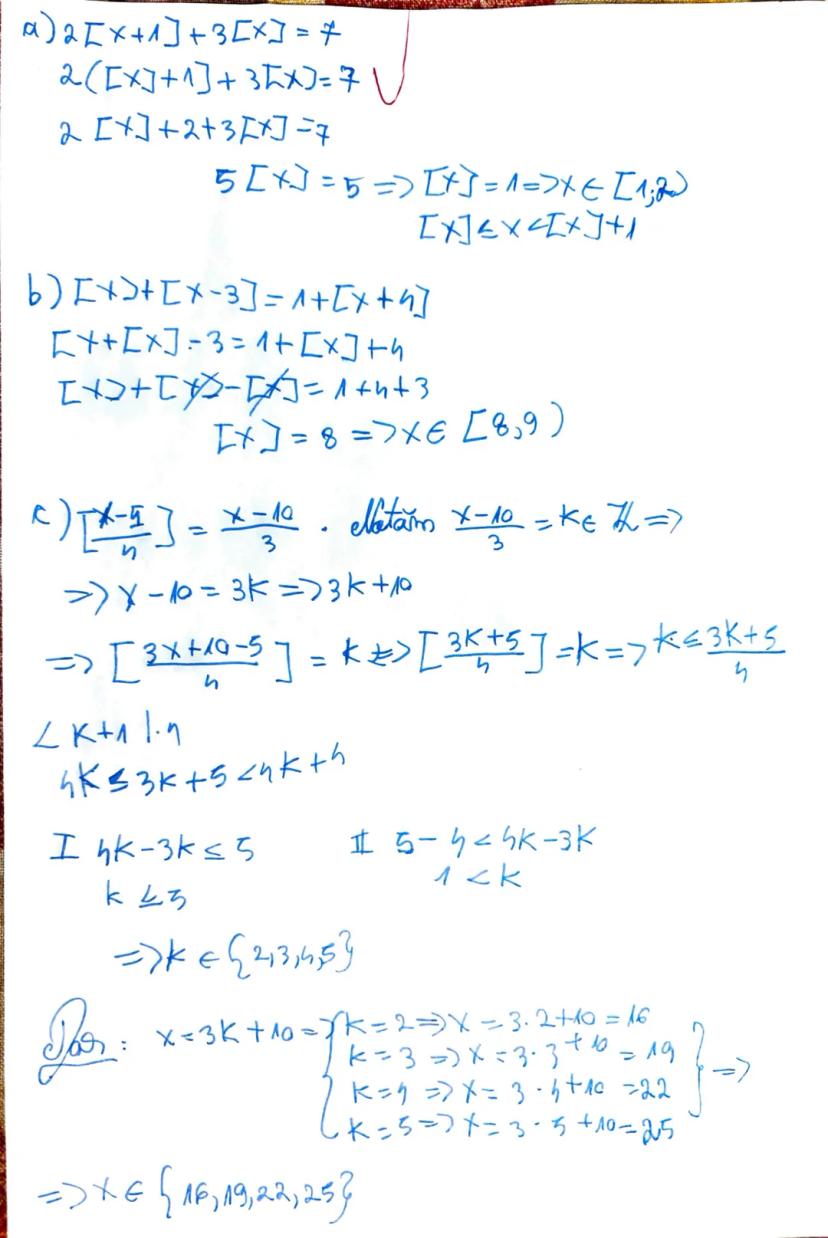 a) 2[x+1]+3[x]=7
2([x]+1]+3[x]=7
2[x]+2+3[x]=7
5[x]=5=>[x]=1=>x∈[1;2)
[x]≤x<[x]+1
b) [x]+[x-3]=1+[x+4]
[x+[x]-3=1+[x]+4
[x]+[x]-[x]=1+4+3
[x]=8=>x∈[8,9)
c) [x-5/4]=x-10/3. Notăm x-10/3=k∈Z=>
=>x-10=3k=>3k+10
=>[3x+10-5/4]=k=>[3k+5/4]=k=>k≤3k+5/4
<k+1|·4
4k≤3k+5<4k+4
I 4k-3k≤5 II 5-4<4k-3k
k≤5 1<k
=>k∈{2,3,4,5}
Dar: x=3k+10=>{k=2=>x=3·2+10=16
k=3=>x=3·3+10=19
k=4=>x=3·4+10=22 }=>
k=5=>x=3·5+10=25
=>x∈{16,19,22,25}